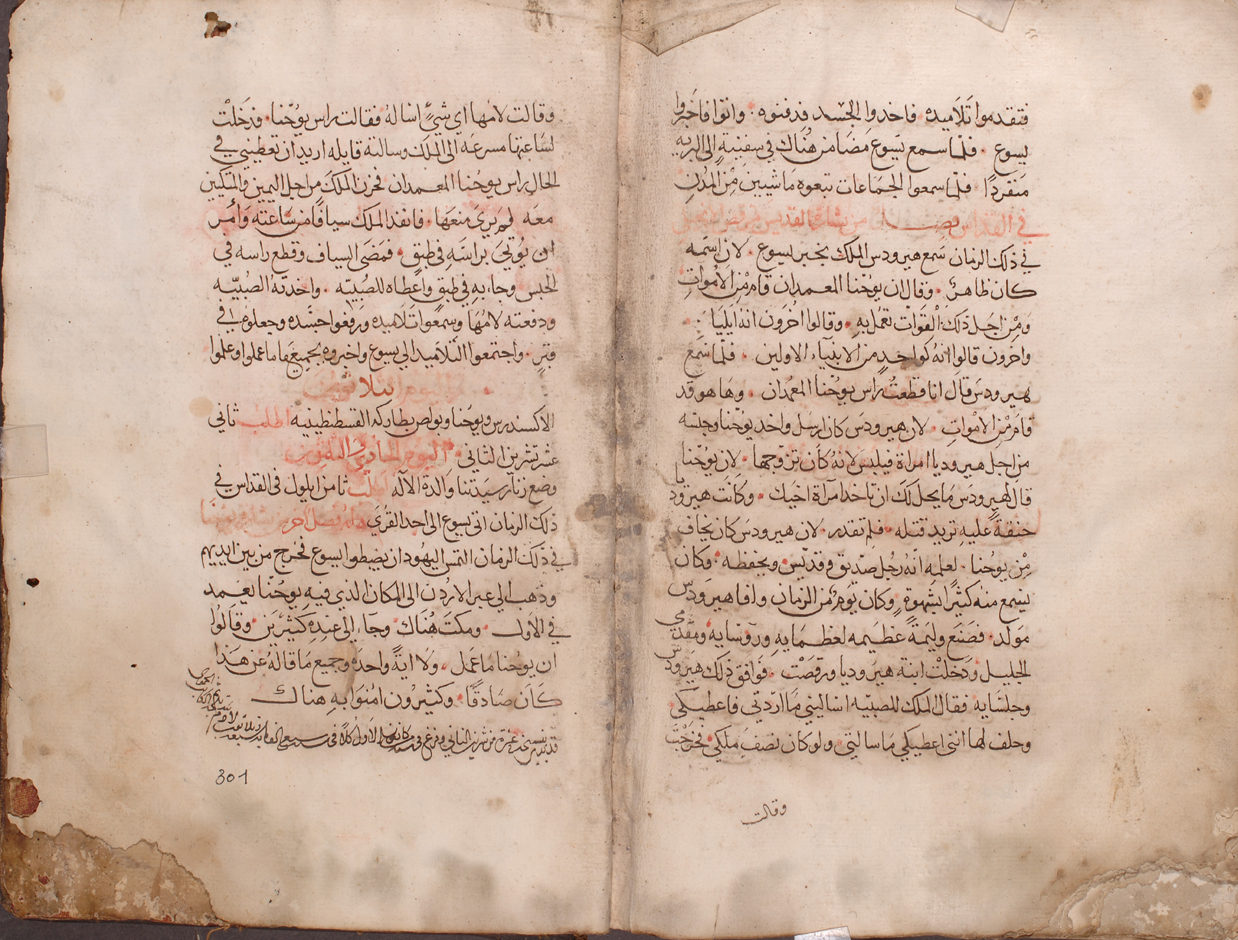 فتقدموا تلاميده فاخدوا الجسد فدفنوه واتوا فاخبروا
يسوع فلما سمع يسوع مضا من هناك في سفينةٍ الى البريه
منفردًا فلما سمعوا الجماعات تبعوه ماشيين مِن المدن
في القداس فصل من بشارة القديس مرقص
في ذلك الزمان سمع هيرودس الملك بخبر يسوع لان اسمه
كان ظاهرً وقال ان يوحنا المعمدان قام مِن الاموات
ومِن اجل ذلك القوات تعمل به وقالوا اخرون انه ايليا
واخرون قالوا انه كواحدٍ من الانبياء الاولين فلما سمع
هيرودس قال انا قطعت راس يوحنا المعمدان وها هو قد
قام من الاموات لان هيرودس كان ارسل واخد يوحنا وحبسه
من اجل هيروديا امراة فيلبس لانه كان تزوجها لان يوحنا
قال لهيرودس ما يحل لك ان تاخد امراة اخيك وكانت هيروديا
حنقةً عليه تريد قتله فلم تقدر لان هيرودس كان يخاف
مِن يوحنا لعلمه انه رجل صديق وقديس ويحفظه وكان
يسمع منه كثيرًا بشهوةٍ وكان يوم مِن الزمان وافا هيرودس
مولد فصنع وليمةً عظيمه لعظمايه وروسايه ومقدمي
الجليل ودخلت ابنة هيروديا ورقصت فوافق ذلك هيرودس
وجلسايه فقال الملك للصبيه اساليني ما اردتي فاعطيكي
وحلف لها انني اعطيكي ما سالتي ولو كان نصف ملكي فخرجت
وقالت
وقالت لامها اي شيٍ اساله فقالت راس يوحنا فدخلت
لساعتها مسرعة الى الملك وسالته قايله اريد ان تعطيني في
الحال راس يوحنا المعمدان فحزن الملك من اجل اليمين والمتكين
معه لم يرى منعها فانفد الملك سيافًا من ساعته وأمر
ان يوتى براسه في طبق فمضى السياف وقطع راسه في
الحبس وجا به في طبق واعطاه للصبيه واخدته الصبيه
ودفعته لامها وسمعوا تلاميده ورفعوا جسده وجعلوه في
قبرٍ واجتمعوا التلاميد الى يسوع واخبروه بجميعها ما عملوا وعلموا
اليوم الثلاثون
الاكسندرس ويوحنا وبولص بطاركة القسطنطينيه اطلب ثاني
عشر تشرين الثاني اليوم الحادي والثلثون
وضع زنار سيدتنا والدة الاله اطلب ثامن ايلول في القداس في
ذلك الزمان اتى يسوع الى احد القرى
في ذلك الزمان التمس اليهود ان يضبطوا يسوع فخرج من بين ايديهم
وذهب الى عبر الاردن الى المكان الذي فيه يوحنا يعمد
في الاول ومكث هناك وجاء الى عنده كثيرين وقالوا
ان يوحنا ما عمل ولا ايةً واحده وجميع ما قاله عن هذا
كان صادقًا وكثيرون امنوا به هناك
تشرين الثاني وفرغ في كانون الاول
301